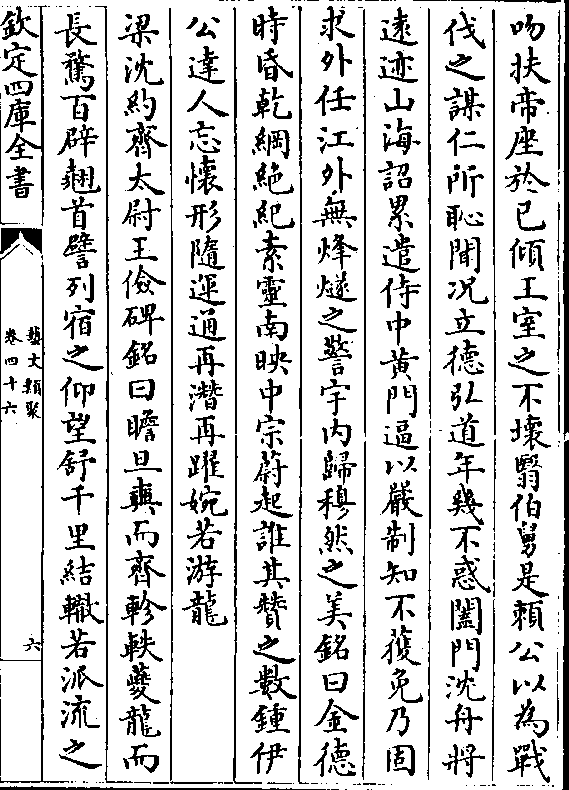 吻扶帝座於已傾王室之不壞翳伯舅是賴公以為戰
伐之謀仁所恥聞况立德弘道年幾不惑闔門沈舟將
逺迹山海詔累遣侍中黄門逼以嚴制知不獲免乃固
求外任江外無烽燧之警宇内歸穆然之美銘曰金德
時昏乾綱絶紀素靈南映中宗蔚起誰其賛之數鍾伊
公達人忘懷形隨運通再潛再躍婉若游龍
梁沈約齊太尉王儉碑銘曰瞻旦奭而齊軫軼䕫龍而
長騖百辟翹首譬列宿之仰望舒千里結轍若派流之
欽定四庫全書
藝文類聚
卷四十六
六